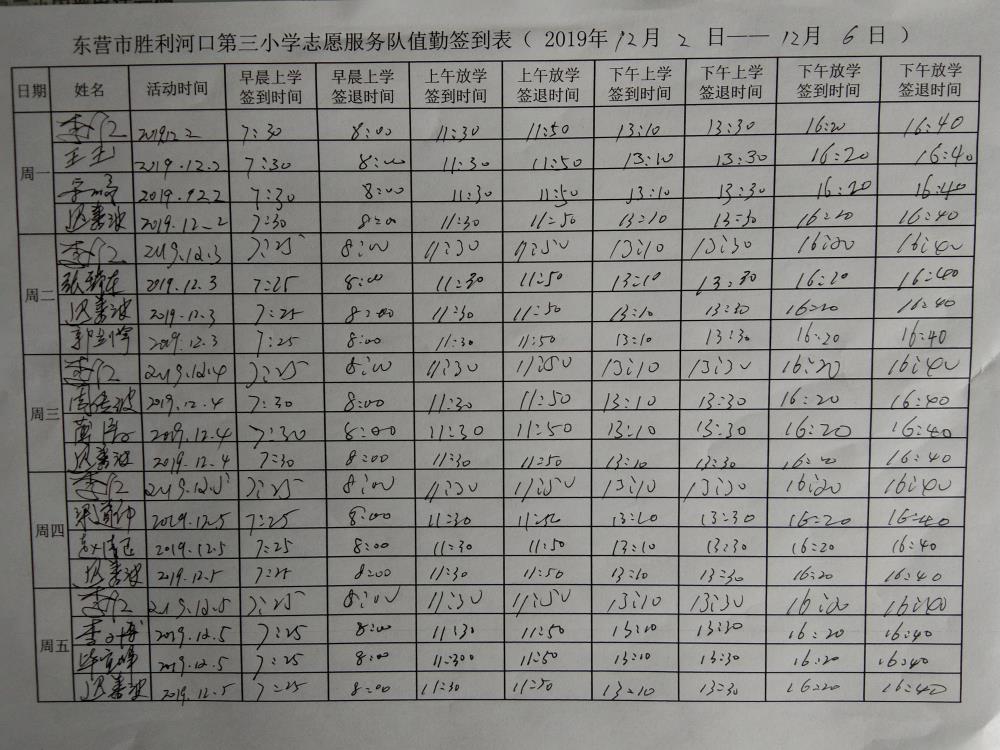 东营市胜利河口第三小学志愿服务队值勤签到表（ 2019年 12月 2 日—— 12月 6 日 ）
日期 姓名 活动时间 早晨上学签到时间 早晨上学签退时间 上午放学签到时间 上午放学签退时间 下午上学签到时间 下午上学签退时间 下午放学签到时间 下午放学签退时间
周一 2019.12.2 7:30 8:00 11:30 11:50 13:10 13:30 16:20 16:40
王玉 2019.12.2 7:30 8:00 11:30 11:50 13:10 13:30 16:20 16:40
7:30 8:00 11:30 11:50 13:10 13:30 16:20 16:40
2019.12.2 7:30 8:00 11:30 11:50 13:10 13:30 16:20 16:40
周二 2019.12.3 7:25 8:00 11:30 11:50 13:10 13:30 16:20 16:40
2019.12.3 7:25 8:00 11:30 11:50 13:10 13:30 16:20 16:40
2019.12.3 7:25 8:00 11:30 11:50 13:10 13:30 16:20 16:40
2019.12.3 7:25 8:00 11:30 11:50 13:10 13:30 16:20 16:40
周三 2019.12.4 7:25 8:00 11:30 11:50 13:10 13:30 16:20 16:40
2019.12.4 7:30 8:00 11:30 11:50 13:10 13:30 16:20 16:40
2019.12.4 7:30 8:00 11:30 11:50 13:10 13:30 16:20 16:40
2019.12.4 7:30 8:00 11:30 11:50 13:10 13:30 16:20 16:40
周四 2019.12.5 7:25 8:00 11:30 11:50 13:10 13:30 16:20 16:40
2019.12.5 7:25 8:00 11:30 11:50 13:10 13:30 16:20 16:40
2019.12.5 7:25 8:00 11:30 11:50 13:10 13:30 16:20 16:40
2019.12.5 7:25 8:00 11:30 11:50 13:10 13:30 16:20 16:40
周五 2019.12.5 7:25 8:00 11:30 11:50 13:10 13:30 16:20 16:40
2019.12.5 7:25 8:00 11:30 11:50 13:10 13:30 16:20 16:40
2019.12.5 7:25 8:00 11:300 11:50 13:10 13:30 16:20 16:40
2019.12.5 7:25 8:00 11:30 11:50 13:10 13:30 16:20 16:40